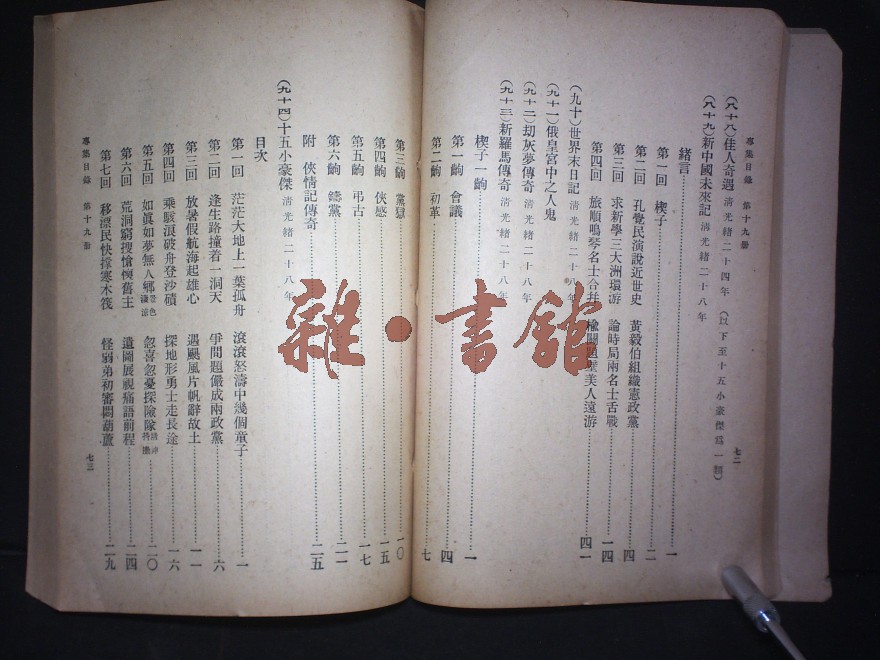 專集目錄 第十九册
七二
(八十八)佳人奇遇 淸光緖二十四年 (以下至十五小豪傑爲一類)
(八十九)新中國未來記 淸光緖二十八年
緒言 一
第一回 楔子 二
第二回 孔覺民演說近世史 黃毅伯組織憲政黨 四
第三回 求新學三大洲環游 論時局兩名士舌戰 一四
第四回 旅順鳴琴名士合 美人遠游 四一
(九十)世界末日記 淸光緖二十八年
(九十一)俄皇宮中之人鬼
(九十二)刧灰夢傳奇 淸光緖二十八年
(九十三)新羅馬傳奇 淸光緖二十八年
楔子一齣 一
第一齣 會議 四
第二齣 初革 七
第三齣 黨獄 一〇
第四齣 俠感 一五
第五齣 弔古 一七
第六齣 鑄黨 二一
附 俠情記傳奇 二五
(九十四)十五小豪傑 淸光緖二十八年
目次
第一回 茫茫大地上一葉孤舟 滾滾怒濤中幾個童子 一
第二回 逢生路撞着一洞天 爭問題儼成兩政黨 六
第三回 放暑假航海起雄心 遇颶風片帆辭故土 一一
第四回 乘駭浪破舟登沙磧 探地形勇士走長途 一六
第五回 如眞如夢無人鄉景色淒涼 忽喜忽憂探險隊精神抖擻 二〇
第六回 荒洞窮搜愴懷舊主 遺圖展視痛語前程 二四
第七回 移漂民快撑寒木筏 怪弱弟初審悶葫蘆 二九
專集目錄 第十九册
七三
雜·書館